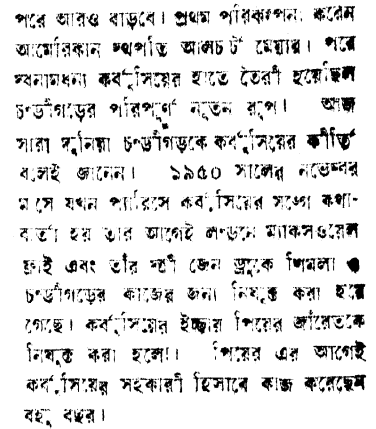 পরে আরও বাড়বে। প্রথম পরিকল্পনা করেন
আমেরিকান স্থপতি আলবার্ট মেয়ার। পরে
স্বনামধন্য কর্বুসিয়ের হাতে তৈরী হয়েছিল
চণ্ডীগড়ের পরিপূর্ণ নূতন রূপ। আজ
সারা দুনিয়া চণ্ডীগড়কে কর্বুসিয়ের কীর্তি
বলেই জানেন। ১৯৫০ সালের নভেম্বর
মাসে যখন প্যারিসে কর্বুসিয়ের সঙ্গে কথা-
বার্তা হয় তার আগেই লণ্ডনে ম্যাকসওয়েল
ফ্রাই এবং তাঁর স্ত্রী জেন ড্রুকে সিমলা ও
চণ্ডীগড়ের কাজের জন্য নিযুক্ত করা হয়ে
গেছে। কর্বুসিয়ের ইচ্ছায় পিয়ের জাঁরেতকে
নিযুক্ত করা হলো। পিয়ের এর আগেই
কর্বুসিয়ের সহকারী হিসাবে কাজ করেছেন
বহু বছর।